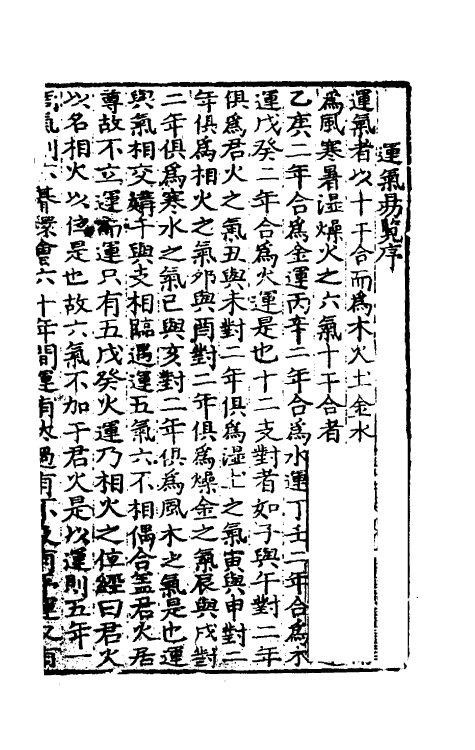 運氣易覧序
運氣者以十干合而爲木火土金水
爲風寒暑湿燥火之六氣十干合者
乙庚二年合爲金運丙辛二年合爲水運丁壬二年合爲木
運戊癸二年合爲火運是也十二支對者如子與午對二年
俱爲君火之氣丑與未對二年俱爲湿土之氣寅與申對二
年俱爲相火之氣卯與酉對二年俱爲燥金之氣辰與戌對
二年俱爲寒水之氣巳與亥對二年俱爲風木之氣是也運
與氣相交媾干與支相臨遇運五氣六不相偶合盖君火居
尊故不立運而運只有五戊癸火運乃相火之位經曰君火
以名相火以位是也故六氣不加于君火是以運則五年一
氣則六朞環會六十年間運有太過有不及有平運又有